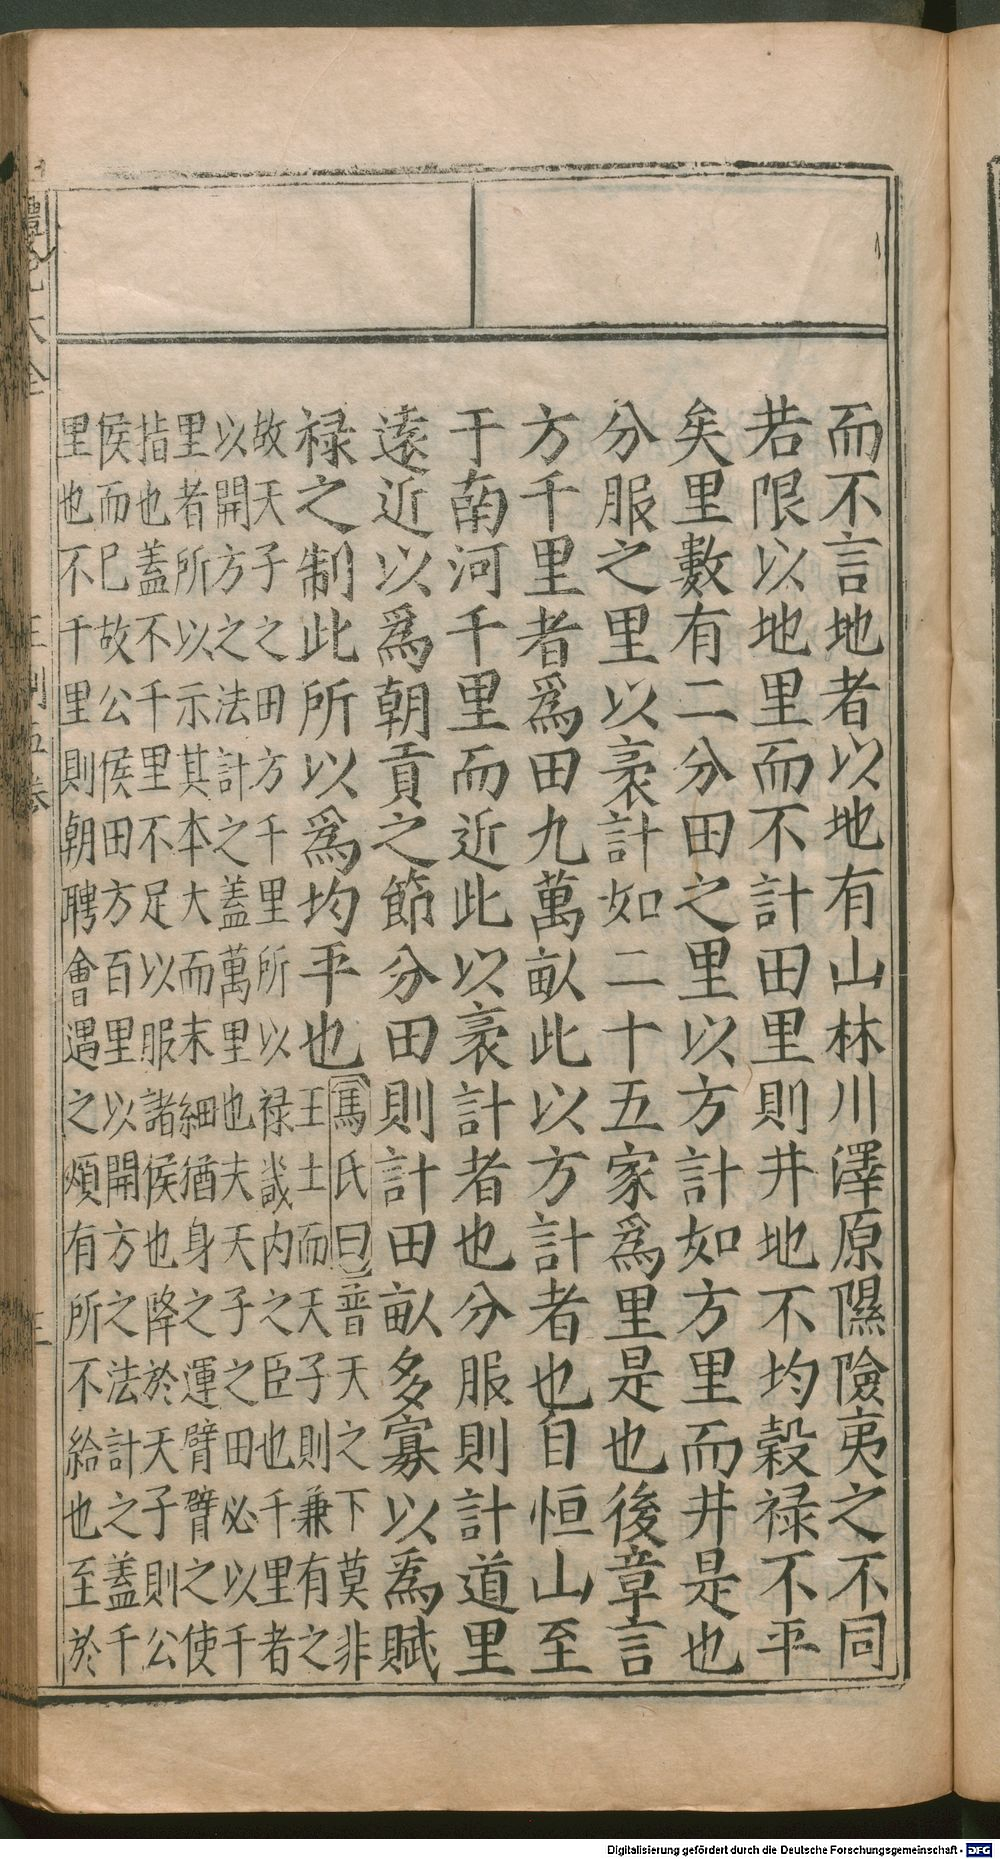 而不言地者以地有山林川澤原隰險夷之不同
若限以地里而不計田里則井地不均穀禄不平
矣里數有二分田之里以方計如方里而井是也
分服之里以袤計如二十五家爲里是也後章言
方千里者爲田九萬畝此以方計者也自恒山至
于南河千里而近此以袤計者也分服則計道里
遠近以爲朝貢之節分田則計田畝多寡以爲賦
禄之制此所以爲均平也馬氏曰普天之下莫非
王土而天子則兼有之
故天子之田方千里所以禄畿内之臣也千里者
以開方之法計之蓋萬里也夫天子之田必以千
里者所以示其本大而末細猶身之運臂臂之使
指也蓋不千里不足以服諸侯也降於天子則公
侯而已故公侯田方百里以開方之法計之蓋千
里也不千里則朝聘會遇之煩有所不給也至於
禮記大全
王制五卷
Digitalisierung gefördert durch die Deutsche Forschungsgemeinschaft - DFG